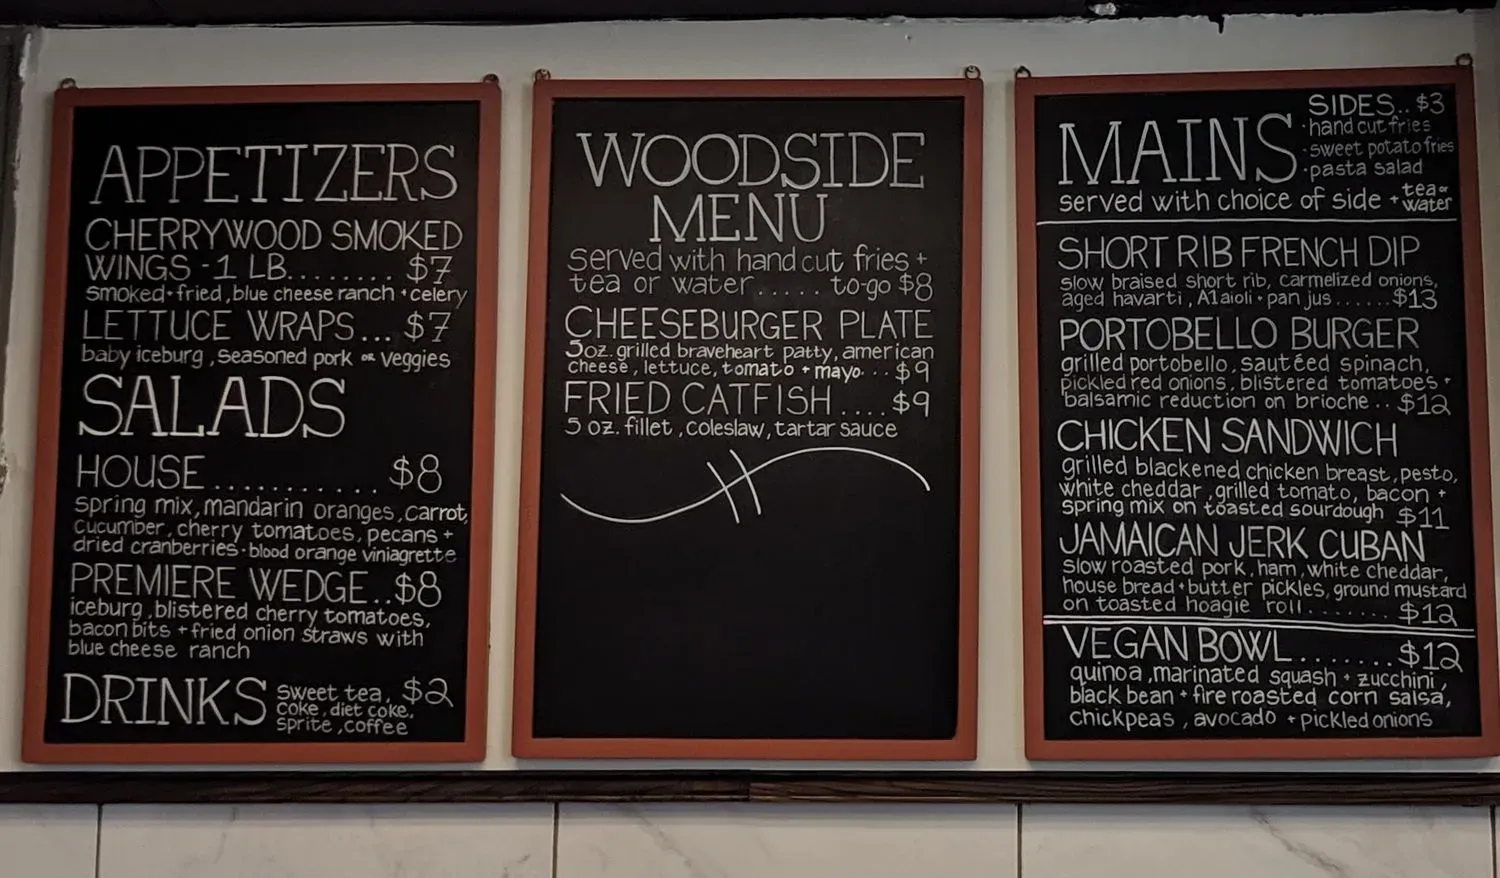 APPETIZERS
CHERRYWOOD SMOKED
WINGS - 1 LB........ $7
smoked + fried, blue cheese ranch + celery
LETTUCE WRAPS... $7
baby iceburg, seasoned pork or veggies
SALADS
HOUSE............ $8
spring mix, mandarin oranges, carrot,
cucumber, cherry tomatoes, pecans +
dried cranberries · blood orange viniagrette
PREMIERE WEDGE..$8
iceburg, blistered cherry tomatoes,
bacon bits + fried onion straws with
blue cheese ranch
DRINKS
sweet tea, $2
coke, diet coke,
sprite, coffee
WOODSIDE
MENU
served with hand cut fries +
tea or water..... to-go $8
CHEESEBURGER PLATE
5oz. grilled braveheart patty, american
cheese, lettuce, tomato + mayo... $9
FRIED CATFISH.... $9
5 oz. fillet, coleslaw, tartar sauce
MAINS
SIDES.. $3
· hand cut fries
· sweet potato fries
· pasta salad
served with choice of side + tea or water
SHORT RIB FRENCH DIP
slow braised short rib, carmelized onions,
aged havarti, A1 aioli · pan jus......$13
PORTOBELLO BURGER
grilled portobello, sautéed spinach,
pickled red onions, blistered tomatoes +
balsamic reduction on brioche.. $12
CHICKEN SANDWICH
grilled blackened chicken breast, pesto,
white cheddar, grilled tomato, bacon +
spring mix on toasted sourdough $11
JAMAICAN JERK CUBAN
slow roasted pork, ham, white cheddar,
house bread + butter pickles, ground mustard
on toasted hoagie roll........ $12
VEGAN BOWL........$12
quinoa, marinated squash + zucchini,
black bean + fire roasted corn salsa,
chickpeas, avocado + pickled onions